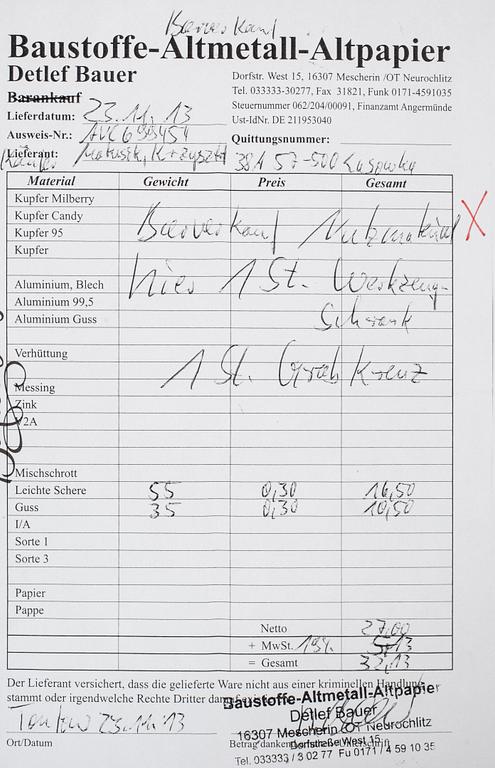 Barverkauf
Baustoffe-Altmetall-Altpapier
Detlef Bauer
Dorfstr. West 15, 16307 Mescherin /OT Neurochlitz
Tel. 033333-30277, Fax 31821, Funk 0171-4591035
Steuernummer 062/204/00091, Finanzamt Angermünde
Ust-IdNr. DE 211953040
Barankauf
Lieferdatum: 23.11.13
Ausweis-Nr.:
Quittungsnummer:
Lieferant: 57-500
Material Gewicht Preis Gesamt
Kupfer Milberry
Kupfer Candy
Kupfer 95 Barverkauf
Kupfer
Aluminium, Blech hier 1 St. Werkzeug-
Aluminium 99,5
Aluminium Guss Schrank
Verhüttung
1 St. Grab Kreuz
Messing
Zink
V2A
Mischschrott
Leichte Schere 55 0,30 16,50
Guss 35 0,30 10,50
I/A
Sorte 1
Sorte 3
Papier
Pappe
Netto 27,00
+ MwSt. 19% 5,13
= Gesamt 32,13
Der Lieferant versichert, dass die gelieferte Ware nicht aus einer kriminellen Handlung
stammt oder irgendwelche Rechte Dritter
Baustoffe-Altmetall-Altpapier
Detlef Bauer
16307 Mescherin /OT Neurochlitz
Dorfstraße West 15
Tel. 033333 / 3 02 77 Fu 0171 / 4 59 10 35
23.11.13
Ort/Datum
Betrag dankend Unterschrift